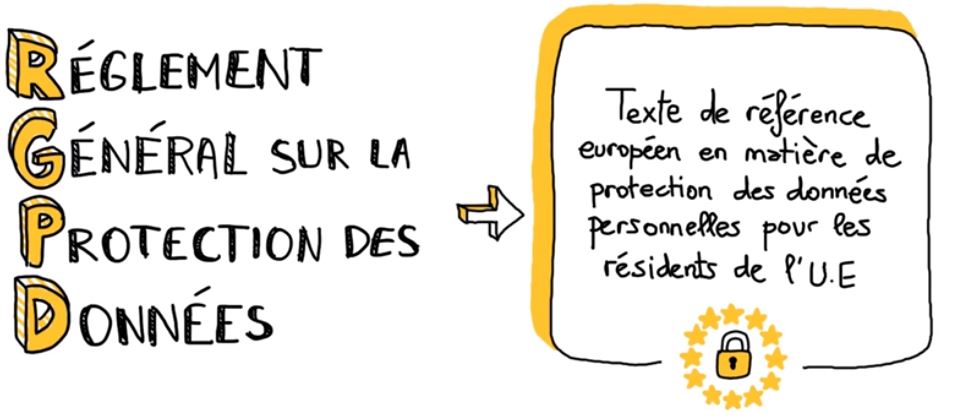 RÉGLEMENT
GÉNÉRAL SUR LA
PROTECTION DES
DONNÉES
Texte de référence
européen en matière de
protection des données
personnelles pour les
résidents de l'U.E